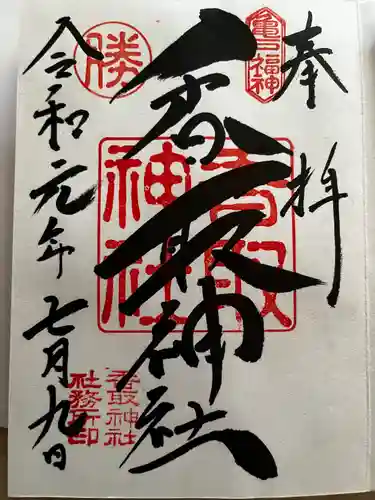 奉拝
亀戸
福神
香取神社
香取
神社
香取神社
社務所印
勝
令和元年七月九日